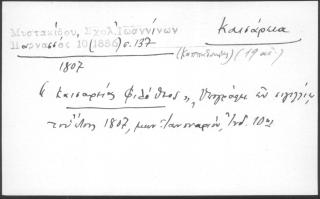 Μυστακίδου, Σχολ. Ἰωαννίνων
Παρνασσός 10 (1886) σ. 137
Καισάρεια
(Καππαδοκίας) (19 αἰ.)
1807
Καισαρείας Φιλόθεος „ Ὑπογράφει ἐν σιγιλλίῳ
τοῦ ἔτους 1807, μηνὶ Ἰανουαρίῳ, Ἰνδ. 10ῃ